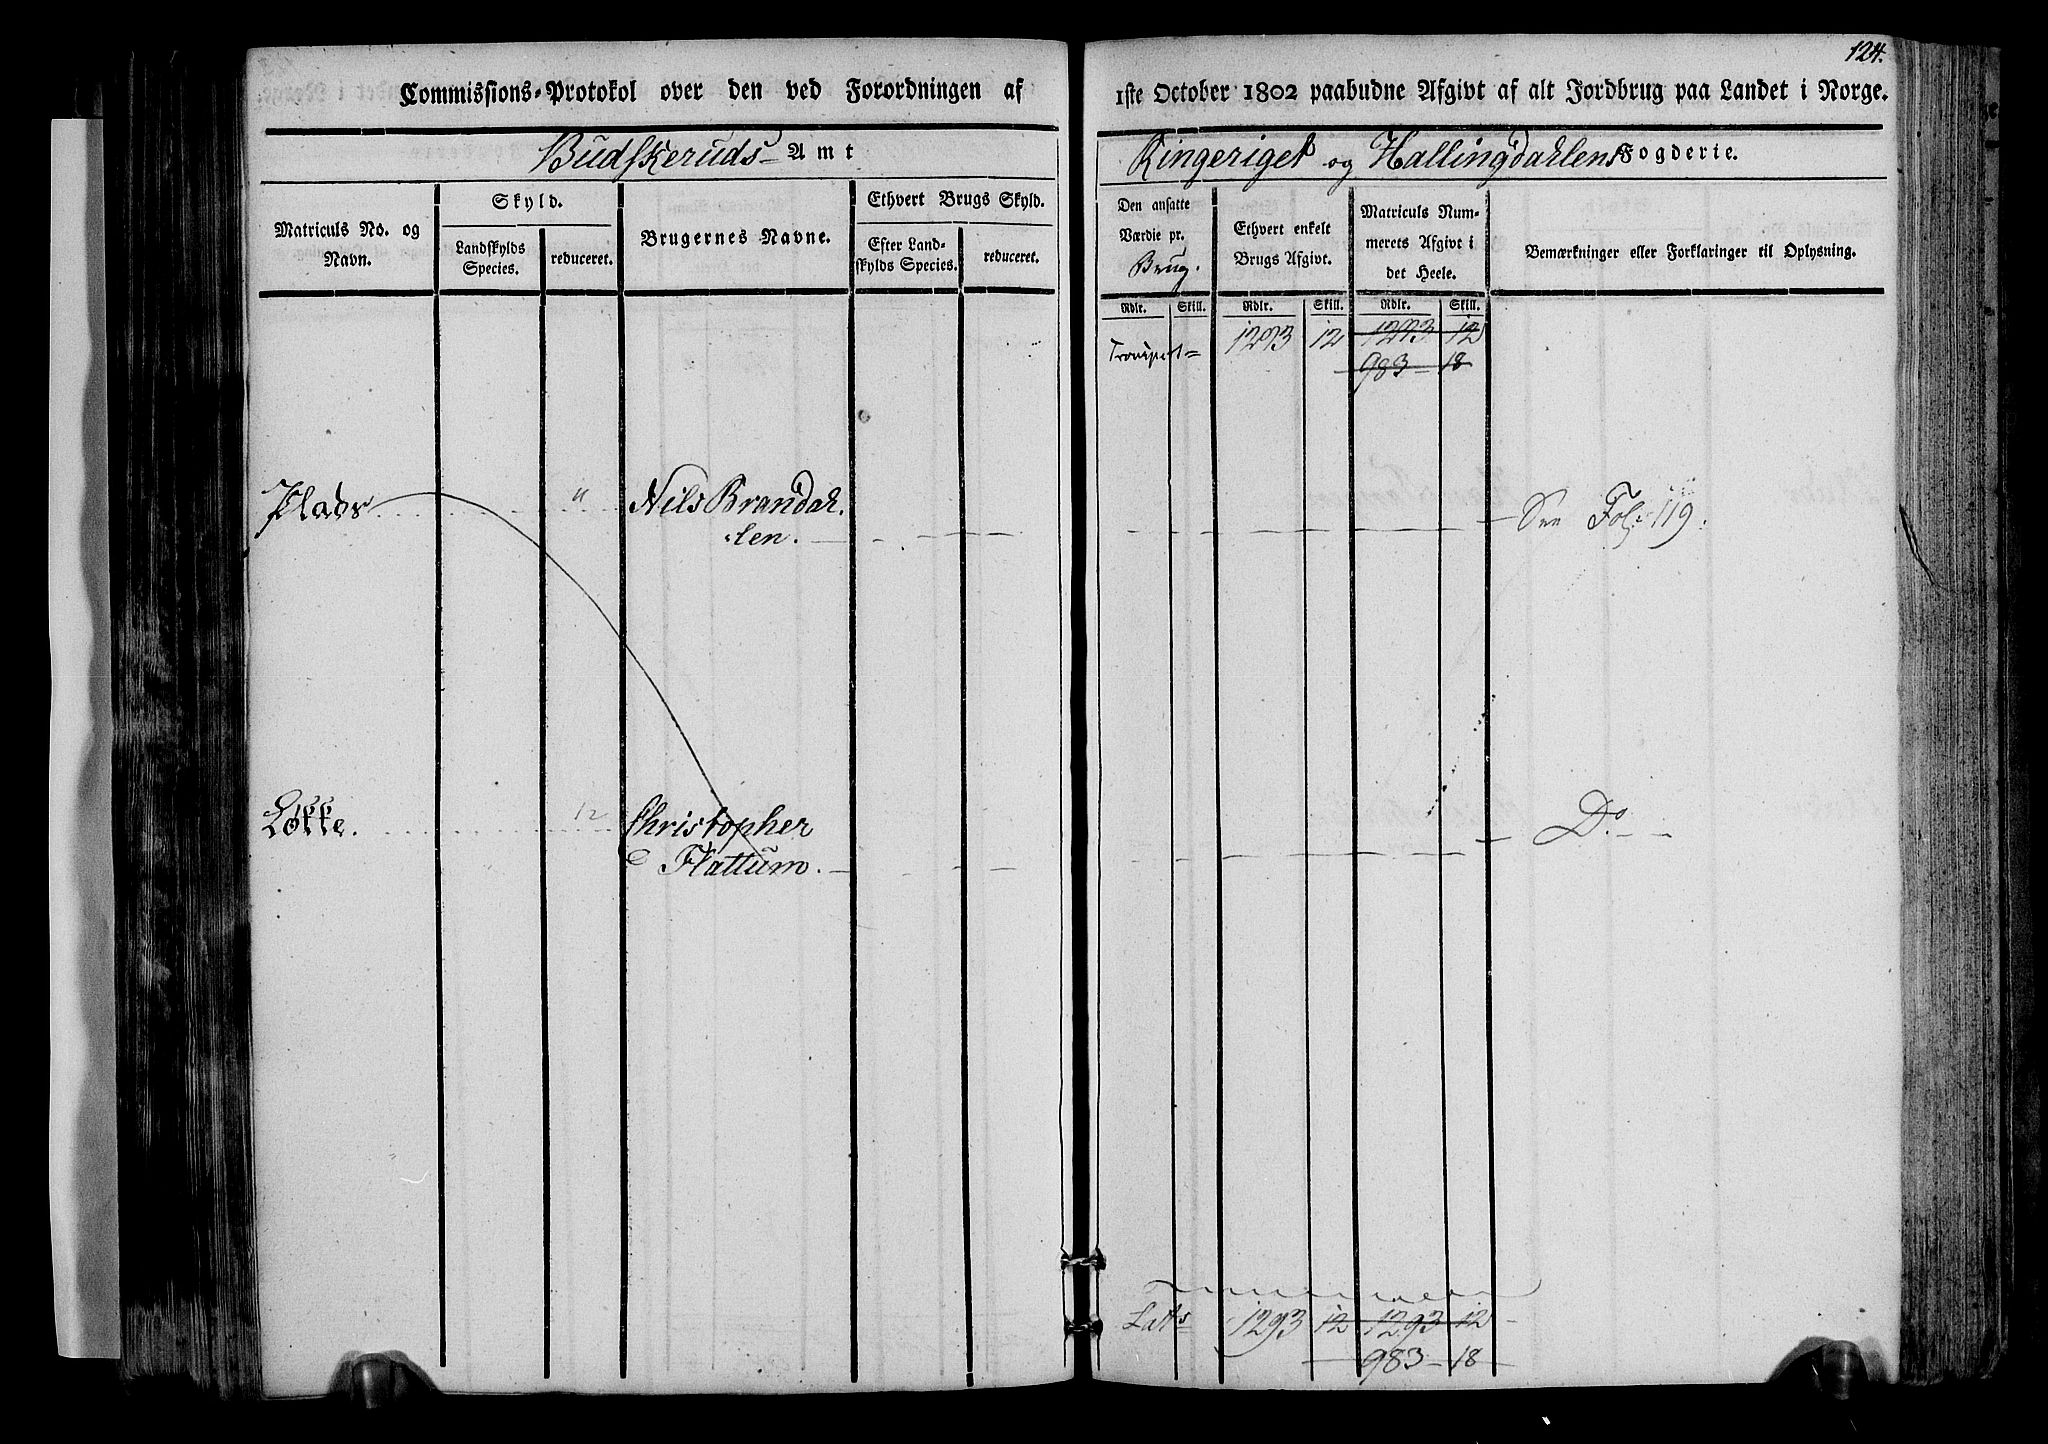 124.
Commissions-Protokol over den ved Forordningen af 1ste October 1802 paabudne Afgivt af alt Jordbrug paa Landet i Norge.
Budskeruds Amt
Ringeriget og Hallingdahlens Fogderie.
Matriculs No. og Navn.
Skyld.
Landskylds Species.
reduceret.
Brugernes Navne.
Ethvert Brugs Skyld.
Efter Landskylds Species.
reduceret.
Den ansatte Værdie pr. Brug.
Ethvert enkelt Brugs Afgivt.
Matriculs Nummerets Afgivt i det Heele.
Bemærkninger eller Forklaringer til Oplysning.
Rdlr. Skill. Rdlr. Skill. Rdlr. Skill.
Transport= 1293 12 1293 12
983 18
Plads " Nils Brandah- See Fol. 119.
len.
Løkke. 12 Christopher Do.
Flattum.
Lats 1293 12 1293 12
983 18